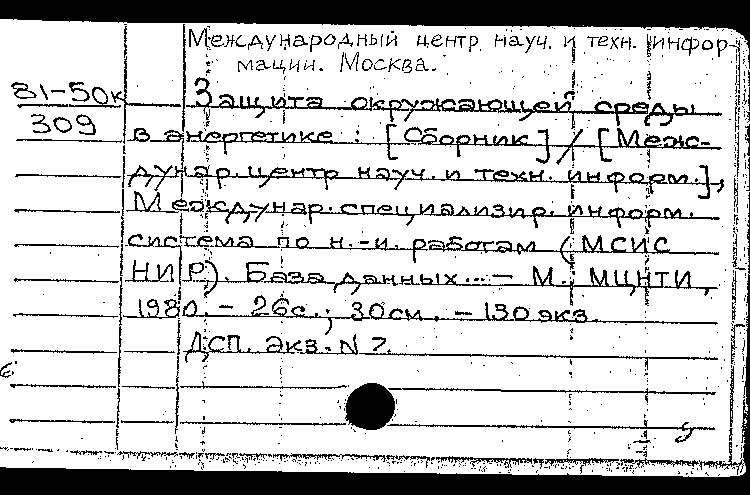 Международный центр науч. и техн. инфор-
мации. Москва.
81-50к Защита окружающей среды
309 в энергетике : [Сборник] / [Меж-
дунар. центр науч. и техн. информ.],
Междунар. специализир. информ.
система по н.-и. работам (МСИС
НИР). База данных... – М. МЦНТИ,
1980. – 26с.; 30см. – 130 экз.
ДСП. Экз. N 7.